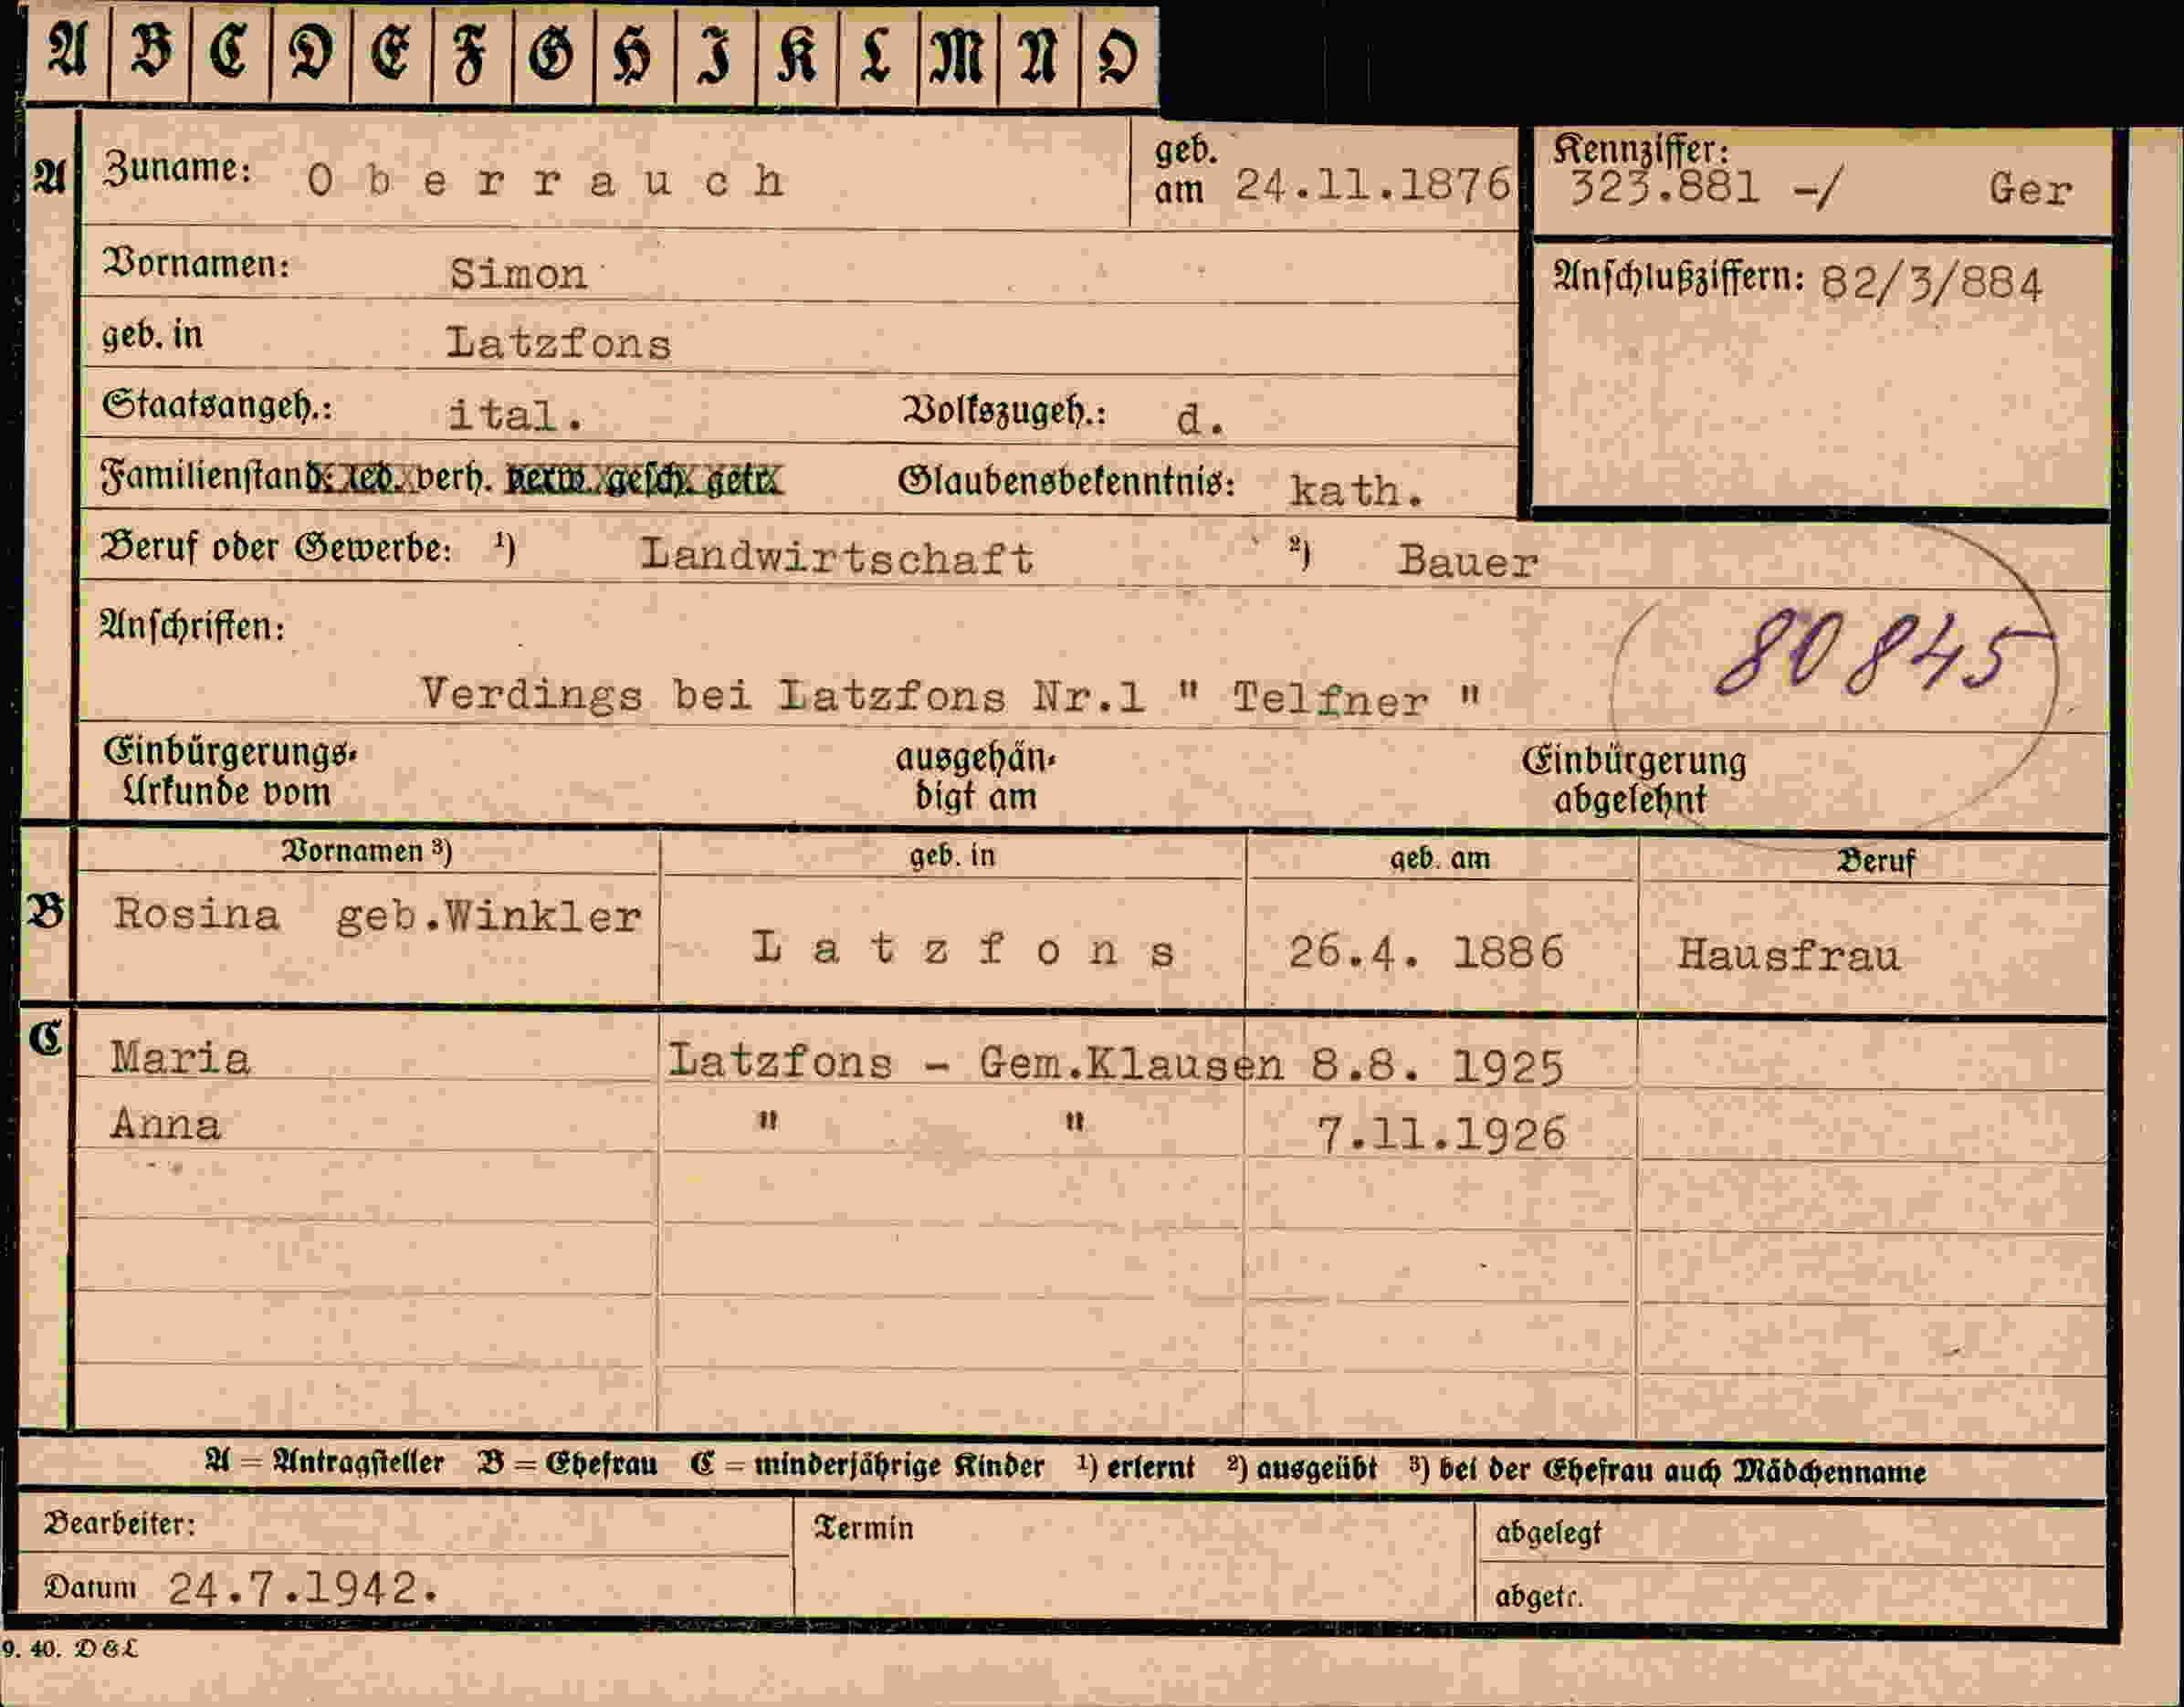 A B C D E F G H I K L M N O
A Zuname: Oberrauch geb. am 24.11.1876 Kennziffer: 323.881 -/ Ger
Vornamen: Simon Anschlußziffern: 82/3/884
geb. in Latzfons
Staatsangeh.: ital. Volkszugeh.: d.
Familienstand: led. verh. verw. gesch. getr. Glaubensbekenntnis: kath.
Beruf oder Gewerbe: ¹) Landwirtschaft ²) Bauer
Anschriften: 80845
Verdings bei Latzfons Nr.1 " Telfner "
Einbürgerungs- ausgehän- Einbürgerung
Urkunde vom digt am abgelehnt
Vornamen ³) geb. in geb. am Beruf
B Rosina geb.Winkler Latzfons 26.4. 1886 Hausfrau
C Maria Latzfons - Gem.Klausen 8.8. 1925
Anna " " 7.11.1926
A = Antragsteller B = Ehefrau C = minderjährige Kinder ¹) erlernt ²) ausgeübt ³) bei der Ehefrau auch Mädchenname
Bearbeiter: Termin abgelegt
Datum 24.7.1942. abgetr.
9. 40. DGL